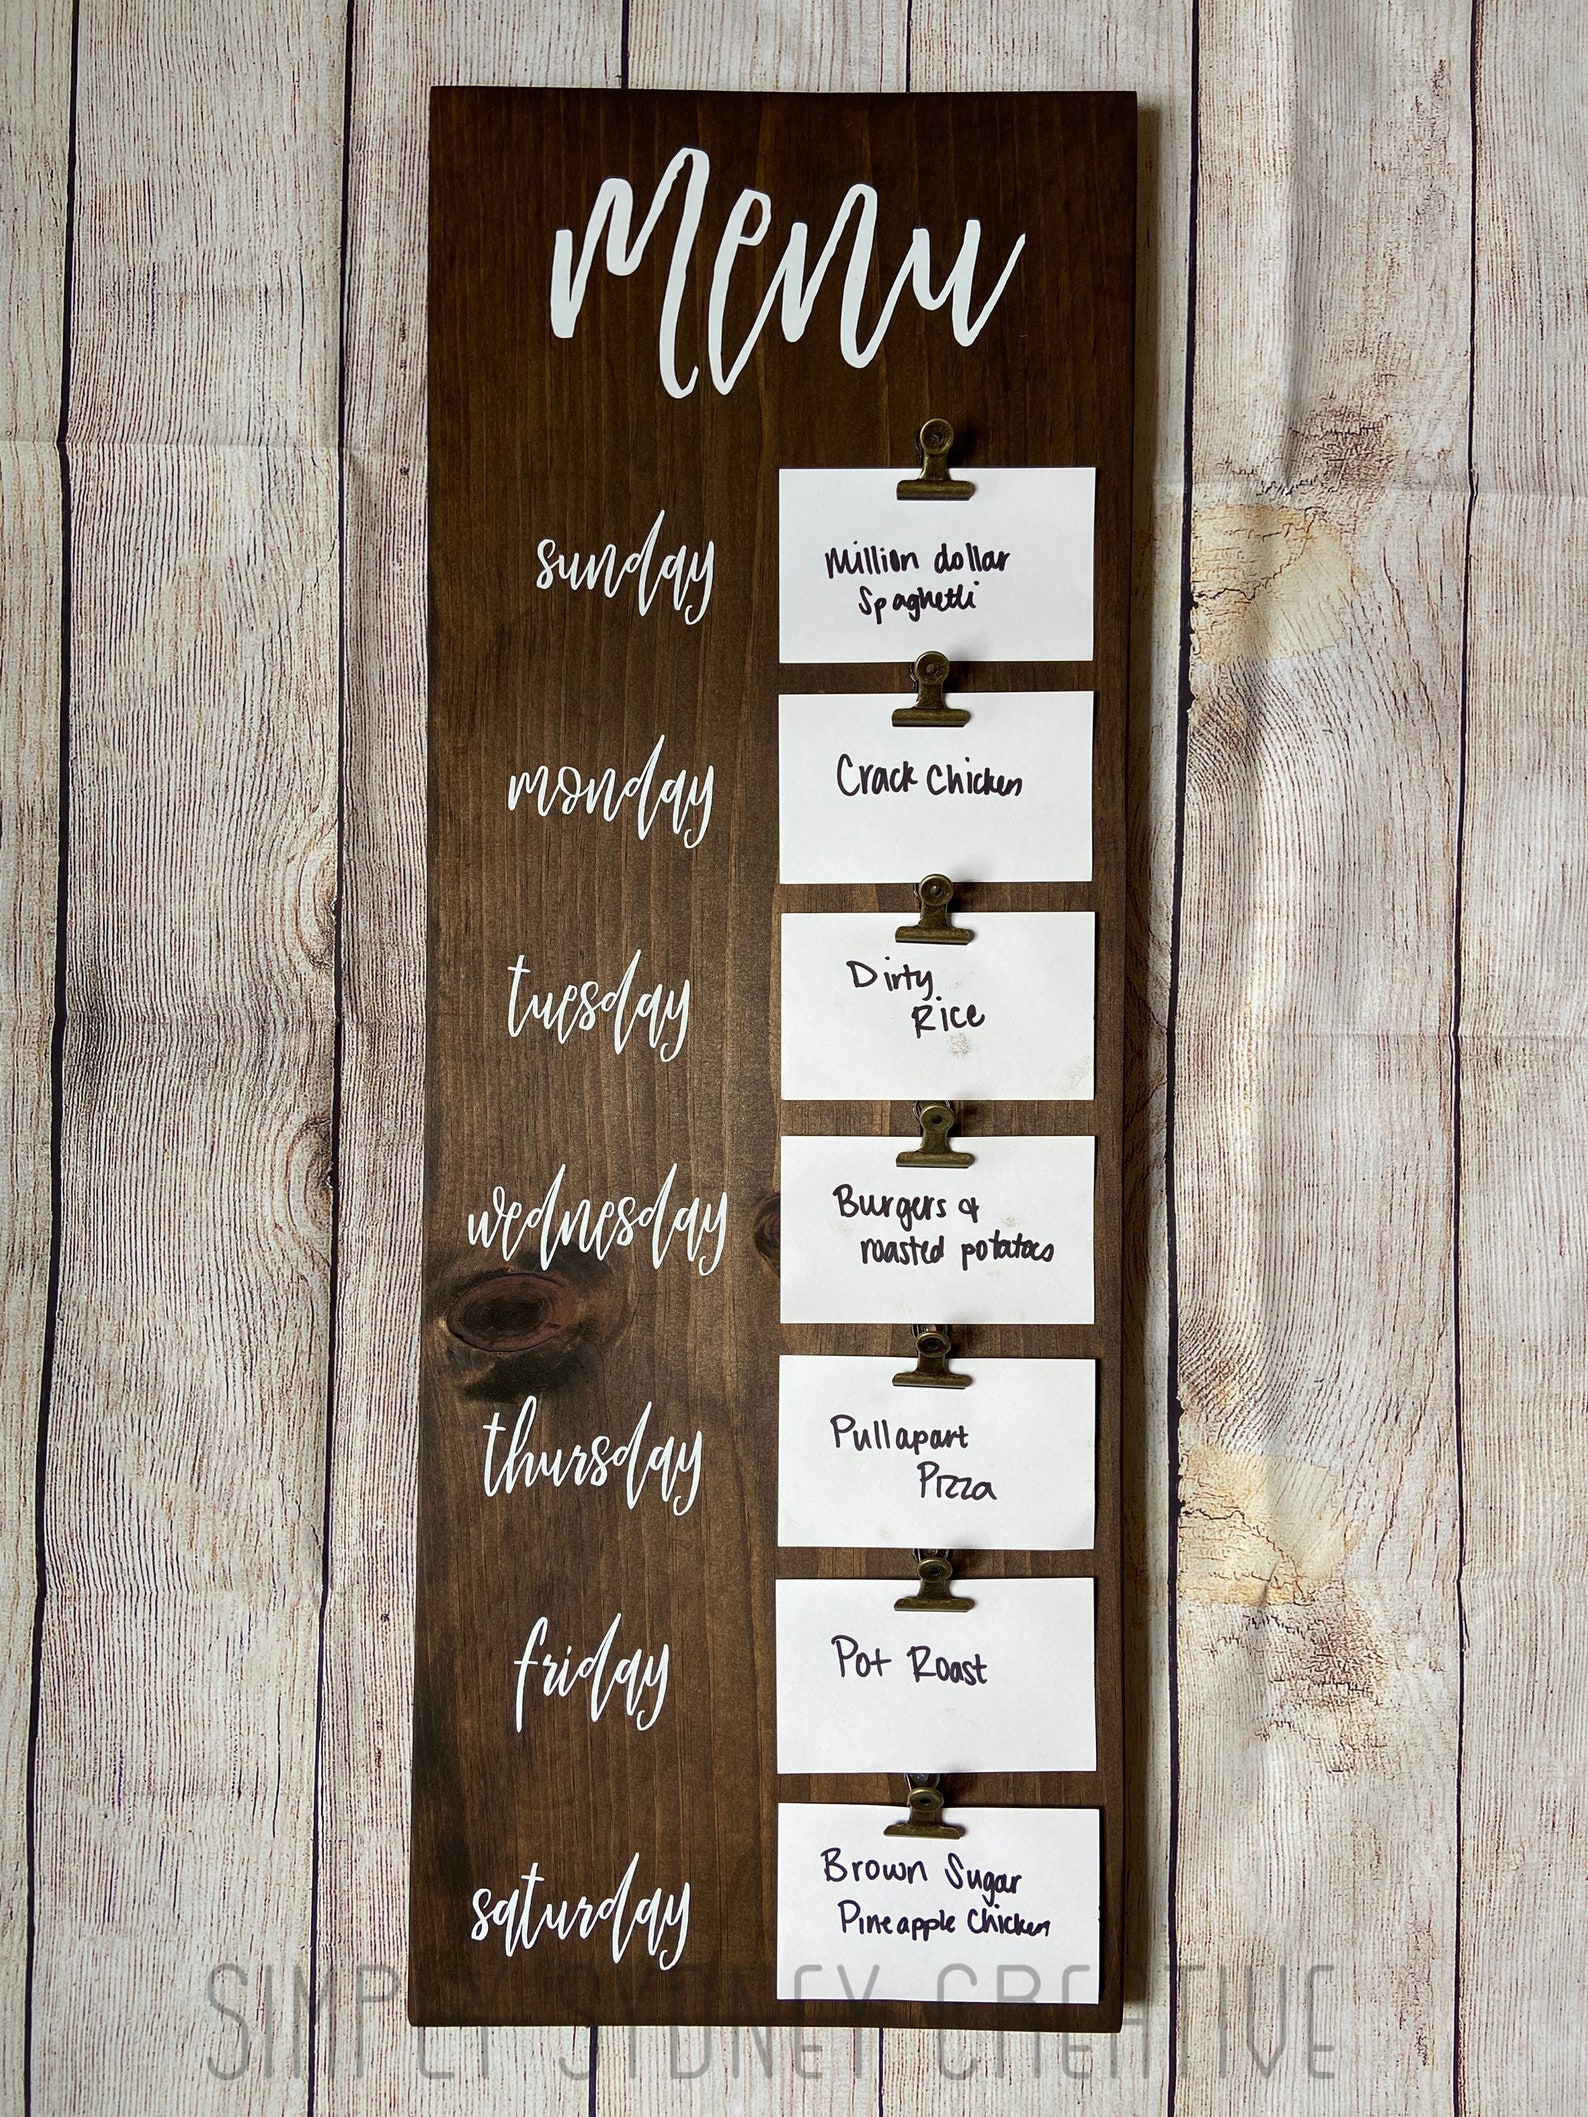 Menu
sunday
Million dollar
Spaghetti
monday
Crack Chicken
tuesday
Dirty
Rice
wednesday
Burgers &
roasted potatoes
thursday
Pull apart
Pizza
friday
Pot Roast
saturday
Brown Sugar
Pineapple Chicken
SIMPLY SYDNEY CREATIVE